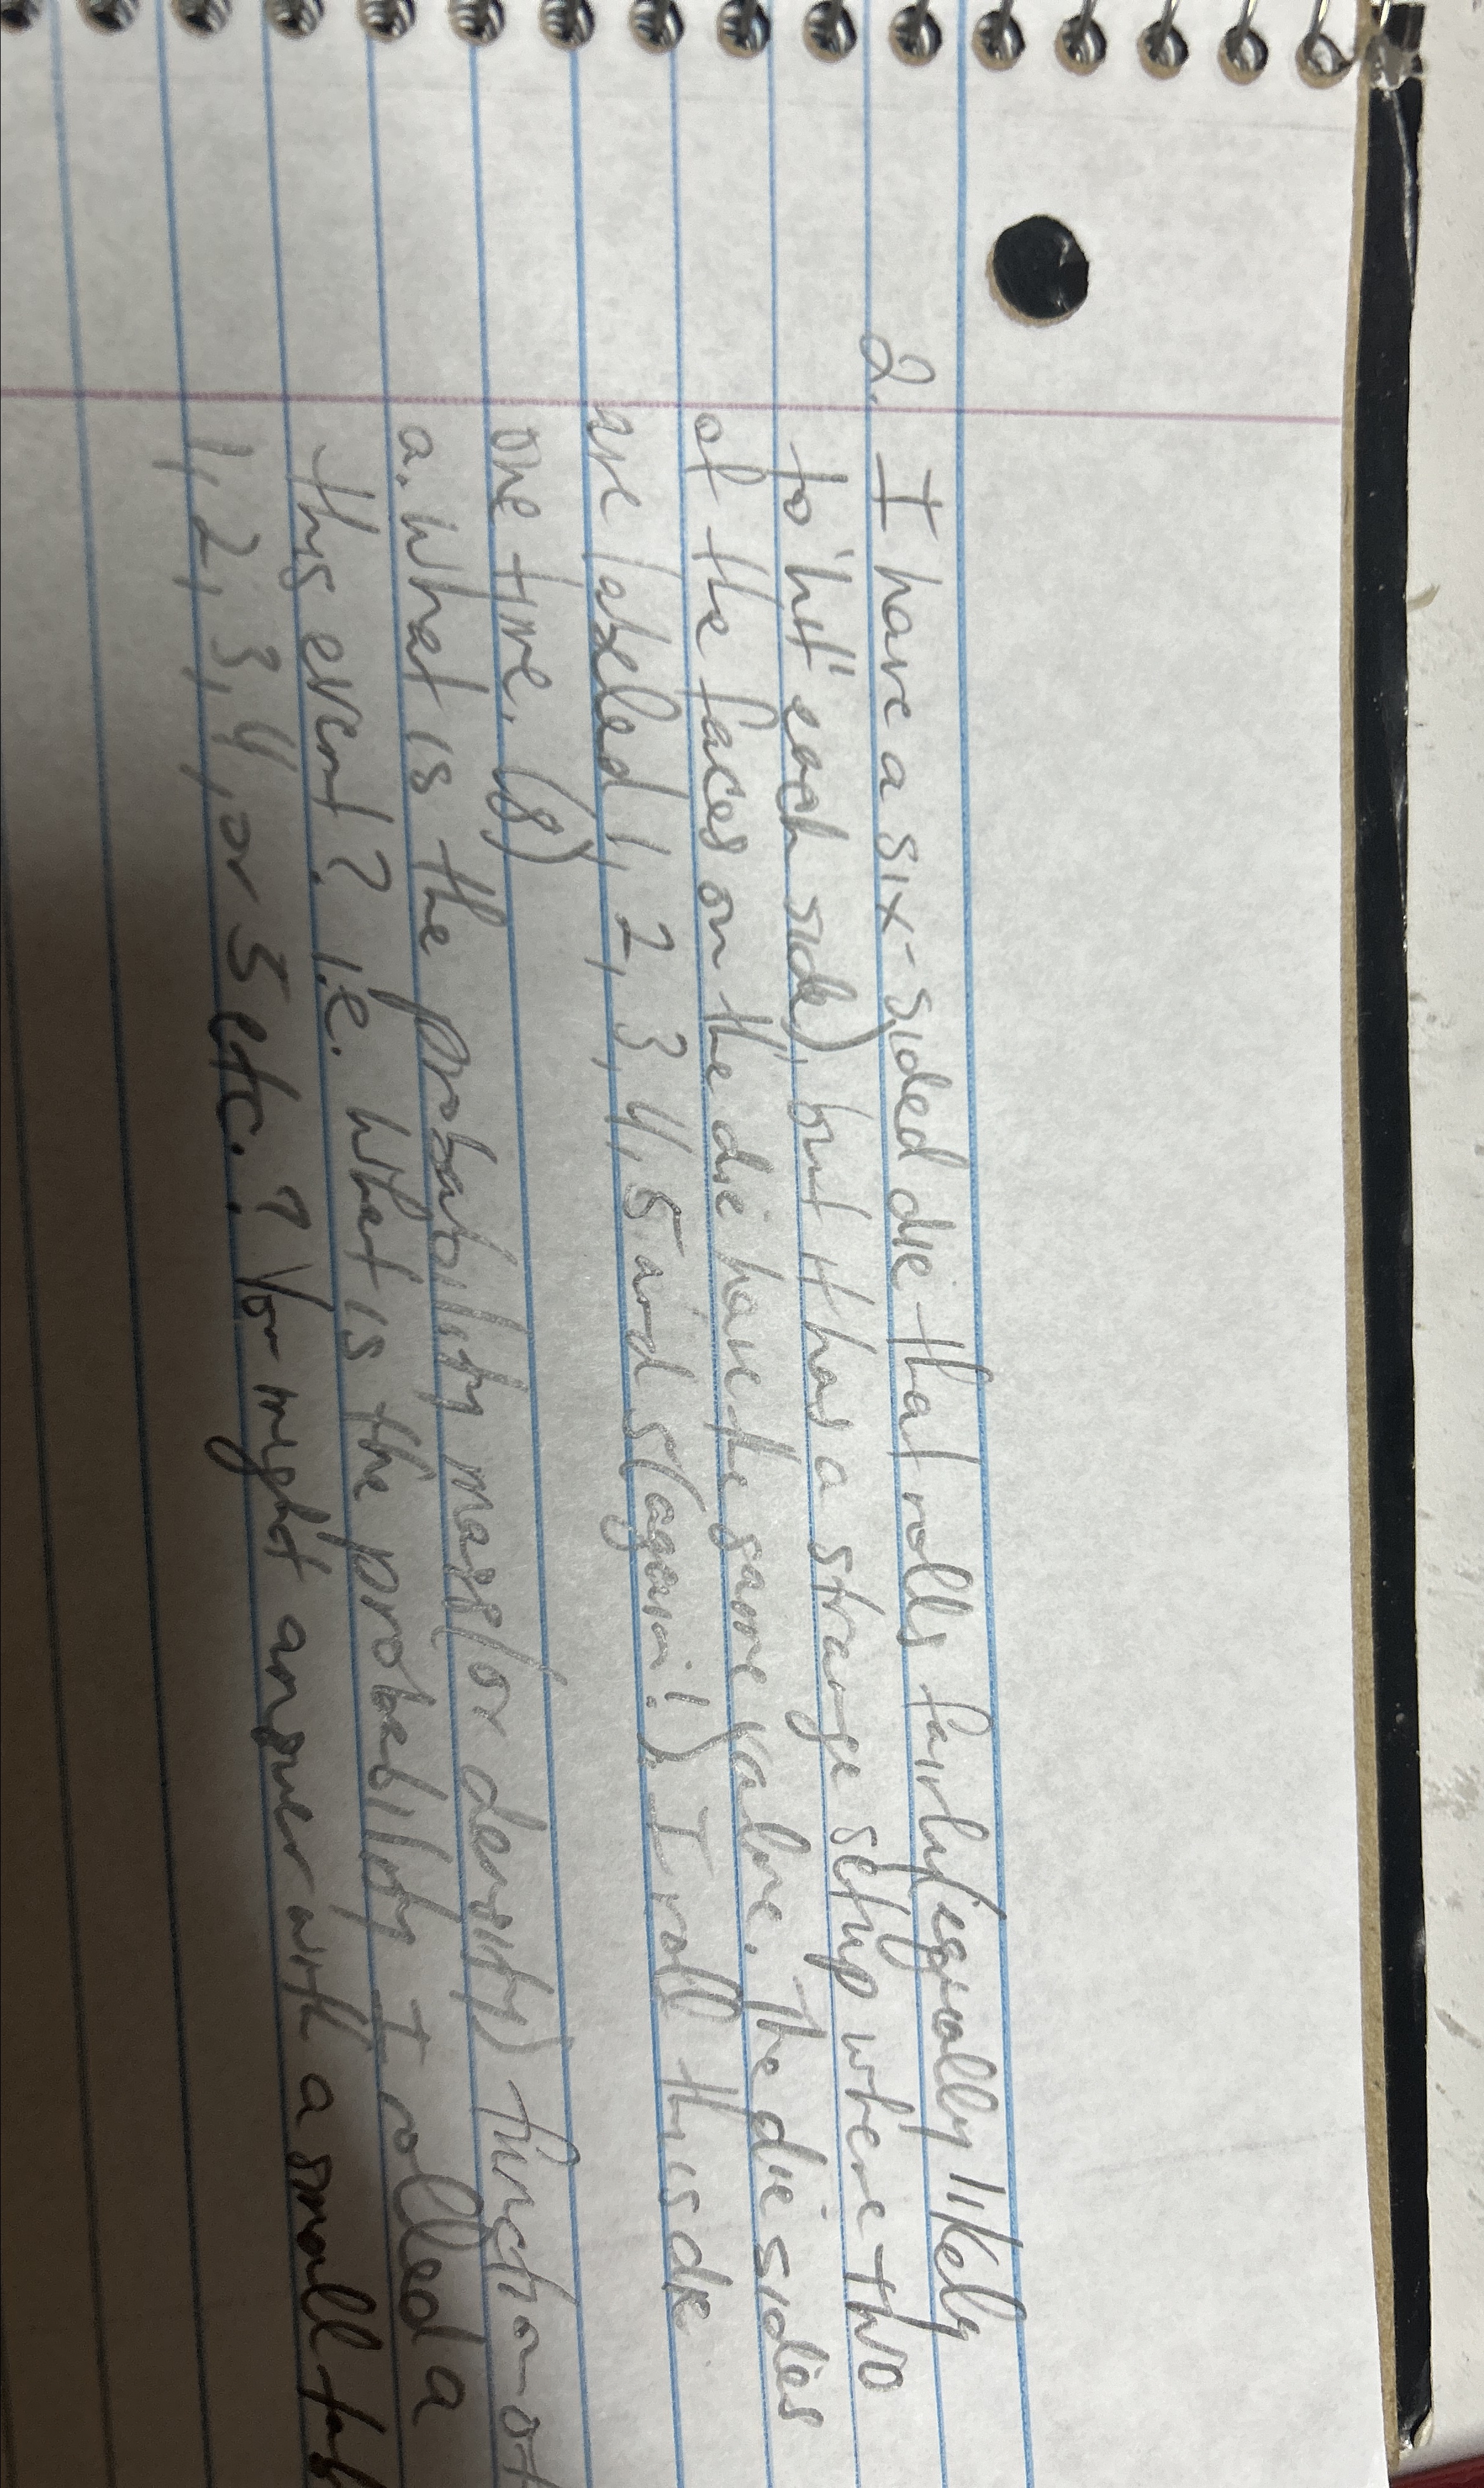 2. I have a six-sided die that rolls fairly(equally likely
to "hit" each side), but it has a strange setup where two
of the faces on the die have the same value. The die sides
are labeled 1, 2, 3, 4, 5 and 5(again!). I roll this die
one time. (8)
a. What is the probability mass(or density) function of
this event? i.e. What is the probability I rolled a
1, 2, 3, 4, or 5 etc.? You might answer with a small tab